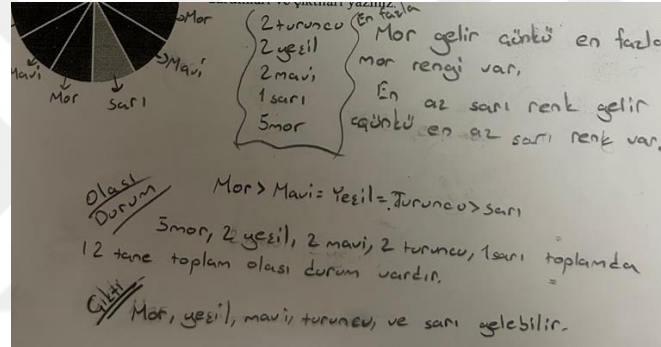 durumları ve çıktıları yazınız.
Mor
Mavi
Sarı
Mor
Mavi
2 turuncu
2 yeşil
2 mavi
1 sarı
5 mor
(En fazla
Mor gelir çünkü en fazla
mor rengi var.
En
az sarı renk gelir
çünkü en az sarı renk var.
Olası
Durum
Mor > Mavi = Yeşil = Turuncu > Sarı
5mor, 2 yeşil, 2 mavi, 2 turuncu, 1sarı toplamda
12 tane toplam olası durum vardır.
Çıktı
Mor, yeşil, mavi, turuncu, ve sarı gelebilir.